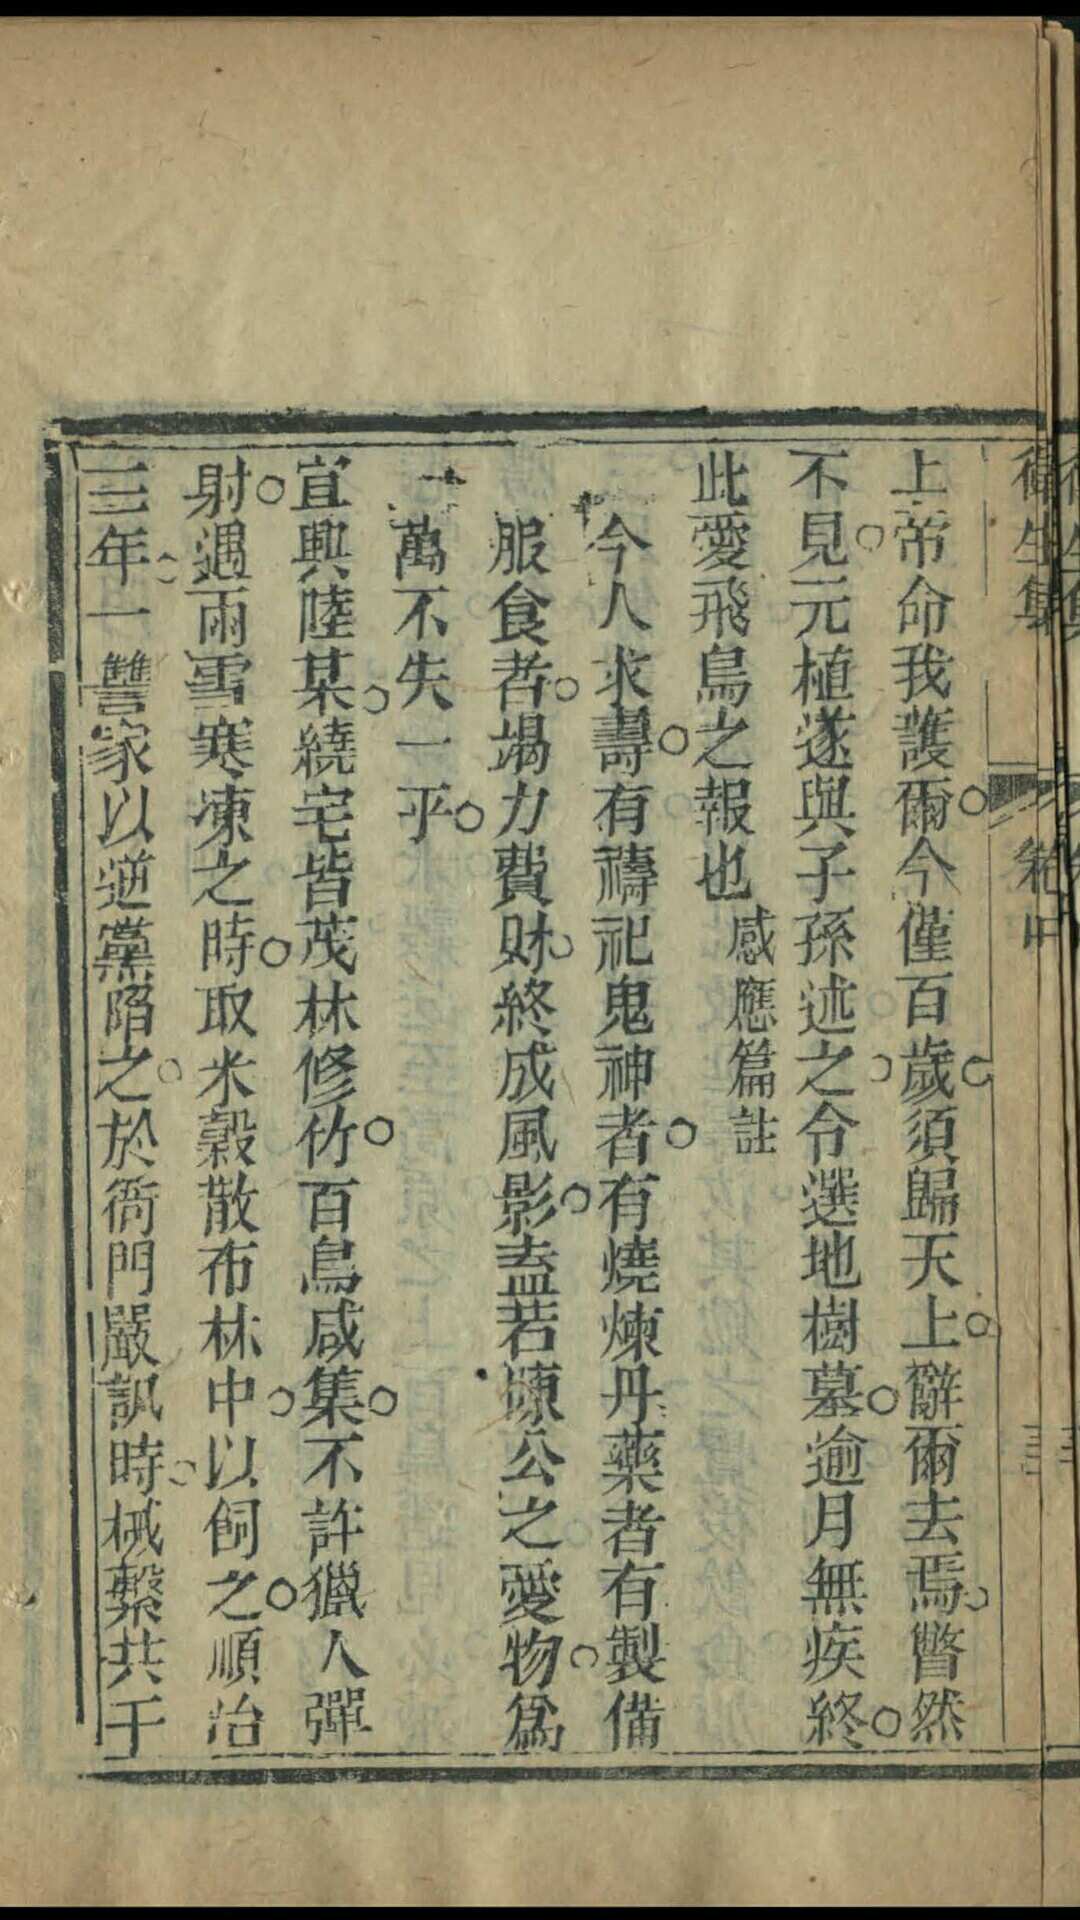 上帝命我護爾今僅百歲須歸天上辭爾去焉瞥然
不見元植遂與子孫述之令選地樹墓逾月無疾終
此愛飛鳥之報也感應篇註
今人求壽有禱祀鬼神者有燒煉丹藥者有製備
服食者竭力費財終成風影盍若陳公之愛物爲
萬不失一乎
宜興陸某繞宅皆茂林修竹百鳥咸集不許獵人彈
射遇雨雪寒凍之時取米穀散布林中以飼之順治
三年一讐家以逆黨陷之於衙門嚴訊時械繫共于
生集
卷中